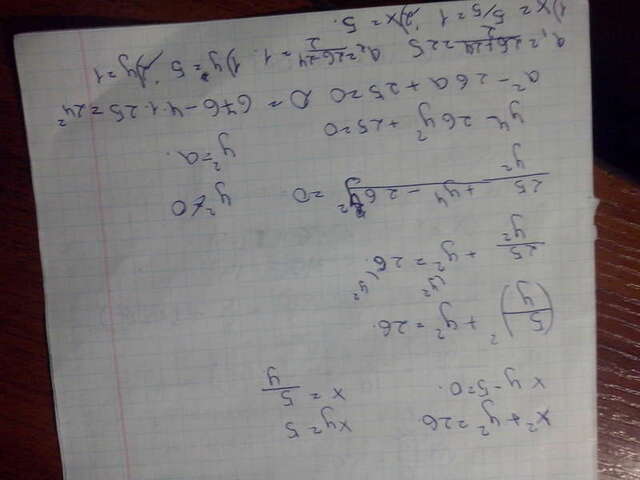 x² + y² = 26    xy = 5
xy - 5 = 0.    x = 5/y
(5/y)² + y² = 26.
y²  y²
25/y² + y² = 26.
(25 + y⁴ - 26y²)/y² = 0    y² ≠ 0
y² = a.
y⁴ - 26y² + 25 = 0
a² - 26a + 25 = 0    D = 676 - 4·1·25 = 24²
a₁ = (26+24)/2 = 25    a₂ = (26-24)/2 = 1.    1) y = 5    2) y = 1
1) x = 5/5 = 1    2) x = 5.